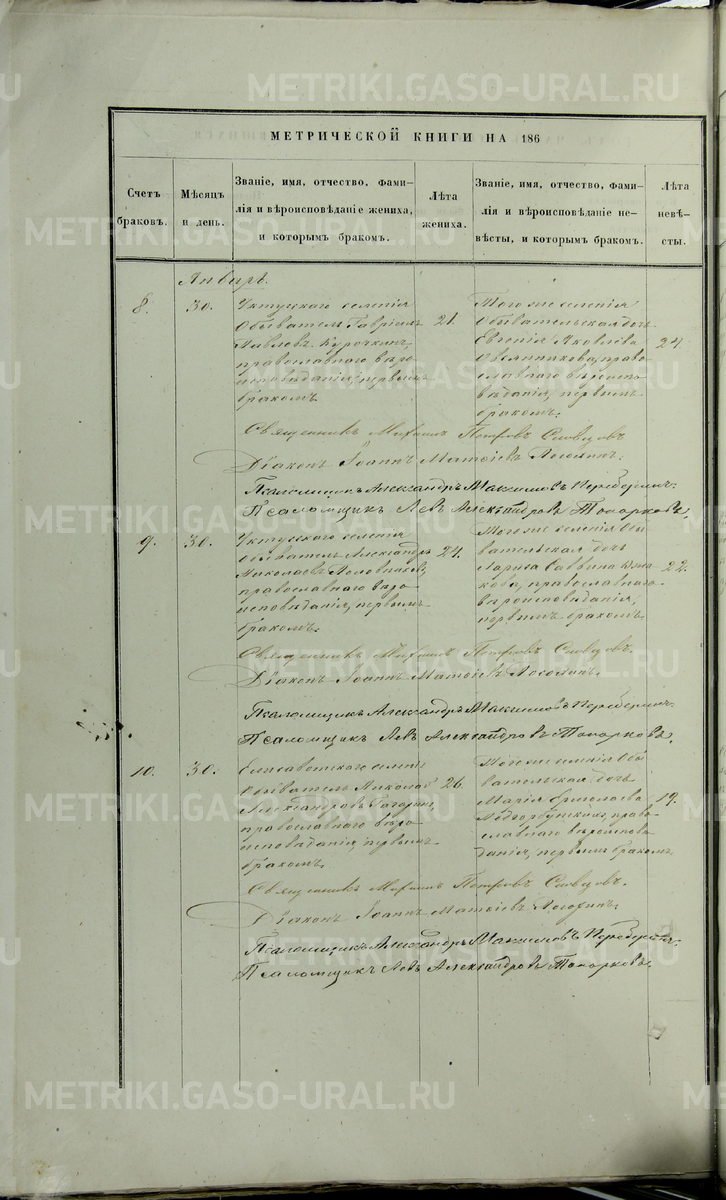 METRIKI.GASO-URAL.RU
МЕТРИЧЕСКОЙ КНИГИ НА 186
Счетъ браковъ.
Мѣсяцъ и день.
Званіе, имя, отчество, фами-
лія и вѣроисповѣданіе жениха,
и которымъ бракомъ.
Лѣта жениха.
Званіе, имя, отчество, фами-
лія и вѣроисповѣданіе не-
вѣсты, и которымъ бракомъ.
Лѣта невѣ-
сты.
Январь.
8.
30.
Уктусскаго селенія
обыватель Гавріилъ
Павловъ Курочкинъ,
православнаго вѣро
исповѣданія, первымъ
бракомъ.
21.
Того же селенія
обывательская дочь
Евгенія Яковлева
Овчинникова, право
славнаго вѣроиспо
вѣданія, первымъ
бракомъ.
24.
Священникъ Михаилъ Петровъ Словцовъ
Діаконъ Іоаннъ Матѳіевъ
Псаломщикъ Александръ Максимовъ
Псаломщикъ Левъ Александровъ Топорковъ.
9.
30.
Уктусскаго селенія
обыватель Александръ
Николаевъ
православнаго вѣро
исповѣданія, первымъ
бракомъ.
24.
Того же селенія обы
вательская дочь
Лариса Саввина
православнаго
вѣроисповѣданія,
первымъ бракомъ.
22.
Священникъ Михаилъ Петровъ Словцовъ.
Діаконъ Іоаннъ Матѳіевъ
Псаломщикъ Александръ Максимовъ
Псаломщикъ Левъ Александровъ Топорковъ.
10.
30.
Елисаветскаго селенія
обыватель Николай
Александровъ
православнаго вѣро
исповѣданія, первымъ
бракомъ.
26.
Того же селенія обы
вательская дочь
Марія Ермолаева
право
славнаго вѣроиспове
данія, первымъ бракомъ.
19.
Священникъ Михаилъ Петровъ Словцовъ.
Діаконъ Іоаннъ Матѳіевъ
Псаломщикъ Александръ Максимовъ
Псаломщикъ Левъ Александровъ Топорковъ.